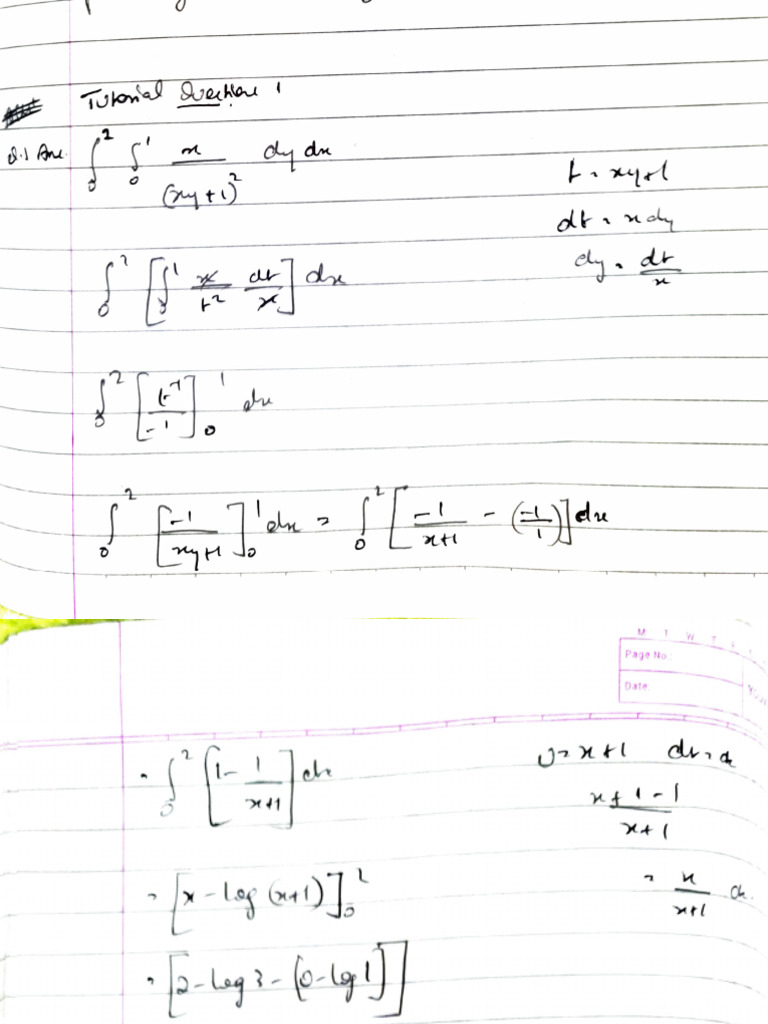 Tutorial Question 1
Q.1 Ans. ∫₀² ∫₀¹ x/(xy+1)² dy dx
t = xy+1
dt = x dy
dy = dt/x
∫₀² [∫₀¹ x/t² dt/x] dx
∫₀² [t⁻¹/-1]₀¹ dx
∫₀² [-1/(xy+1)]₀¹ dx = ∫₀² [-1/(x+1) - (-1/1)] dx
M T W T F
Page No.:
Date:
= ∫₀² [1 - 1/(x+1)] dx
v = x+1
(x+1-1)/(x+1)
= [x - log (x+1)]₀²
= x/(x+1)
= [2 - log 3 - (0 - log 1)]